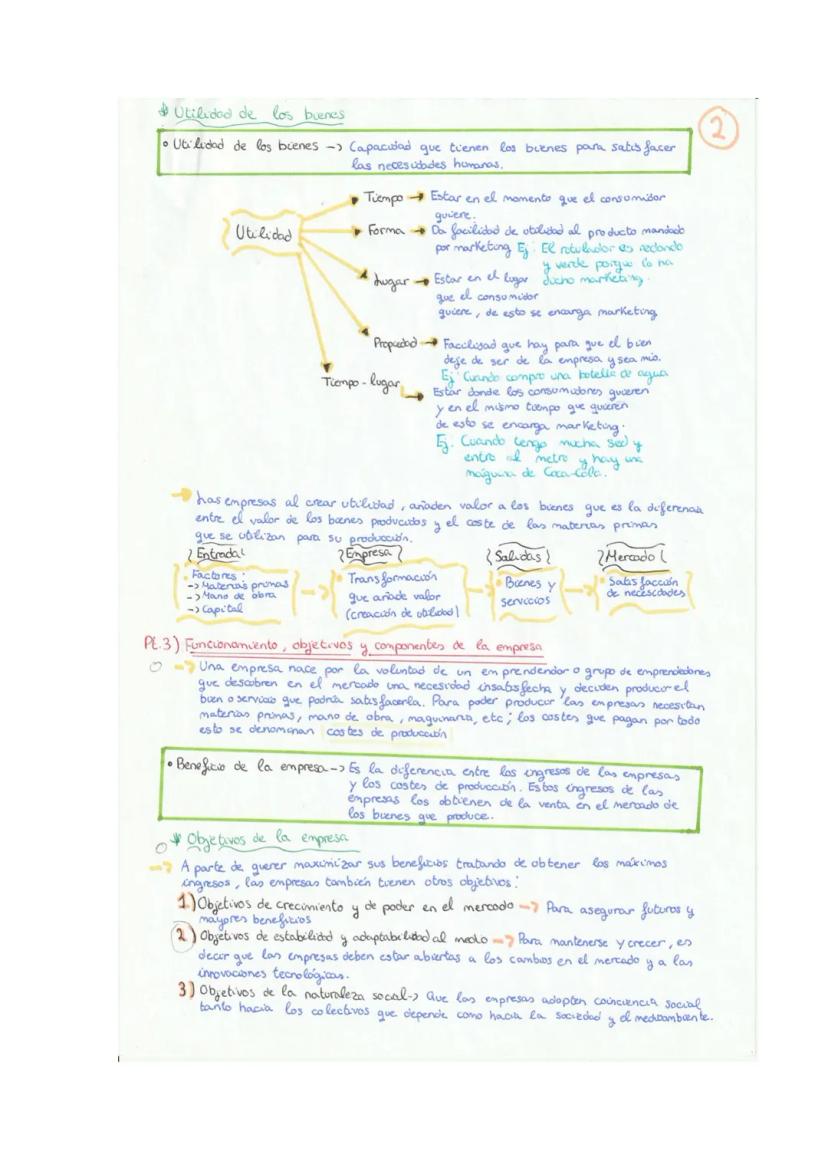 Utilidad de los bienes
2
• Utilidad de los bienes -> Capacidad que tienen los bienes para satisfacer
las necesidades humanas.
Utilidad
Tiempo → Estar en el momento que el consumidor
quiere.
Forma → Da facilidad de utilidad al producto mandado
por marketing Ej: El rotulador es redondo
y verde porque lo ha
dicho marketing.
Lugar → Estar en el lugar
que el consumidor
quiere, de esto se encarga marketing
Propiedad → Facilidad que hay para que el bien
deje de ser de la empresa y sea mío.
Ej: Cuando compro una botella de agua
Tiempo-lugar → Estar donde los consumidores quieren
y en el mismo tiempo que quieren
de esto se encarga marketing.
Ej: Cuando tengo mucha sed y
entro al metro y hay una
máquina de Coca-Cola.
→ Las empresas al crear utilidad, añaden valor a los bienes que es la diferencia
entre el valor de los bienes producidos y el coste de las materias primas
que se utilizan para su producción.
Entrada Empresa Salidas Mercado
• Factores:
-> Materias primas
-> Mano de obra
-> Capital
• Transformación
que añade valor
(creación de utilidad)
• Bienes y
servicios
• Satisfacción
de necesidades
Pt.3) Funcionamiento, objetivos y componentes de la empresa
-> Una empresa nace por la voluntad de un emprendendor o grupo de emprendedores
que descubren en el mercado una necesidad insatisfecha y deciden producir el
bien o servicio que podría satisfacerla. Para poder producir las empresas necesitan
materias primas, mano de obra, maquinaria, etc; los costes que pagan por todo
esto se denominan costes de producción
• Beneficio de la empresa -> Es la diferencia entre los ingresos de las empresas
y los costes de producción. Estos ingresos de las
empresas los obtienen de la venta en el mercado de
los bienes que produce..
Objetivos de la empresa
-> A parte de querer maximizar sus beneficios tratando de obtener los máximos
ingresos, las empresas también tienen otros objetivos:
1) Objetivos de crecimiento y de poder en el mercado -> Para asegurar futuros y
mayores beneficios
2) Objetivos de estabilidad y adaptabilidad al medio -> Para mantenerse y crecer, es
decir que las empresas deben estar abiertas a los cambios en el mercado y a las
innovaciones tecnológicas.
3) Objetivos de la naturaleza social -> Que las empresas adopten conciencia social
tanto hacia los colectivos que depende como hacia la sociedad y el medioambiente.